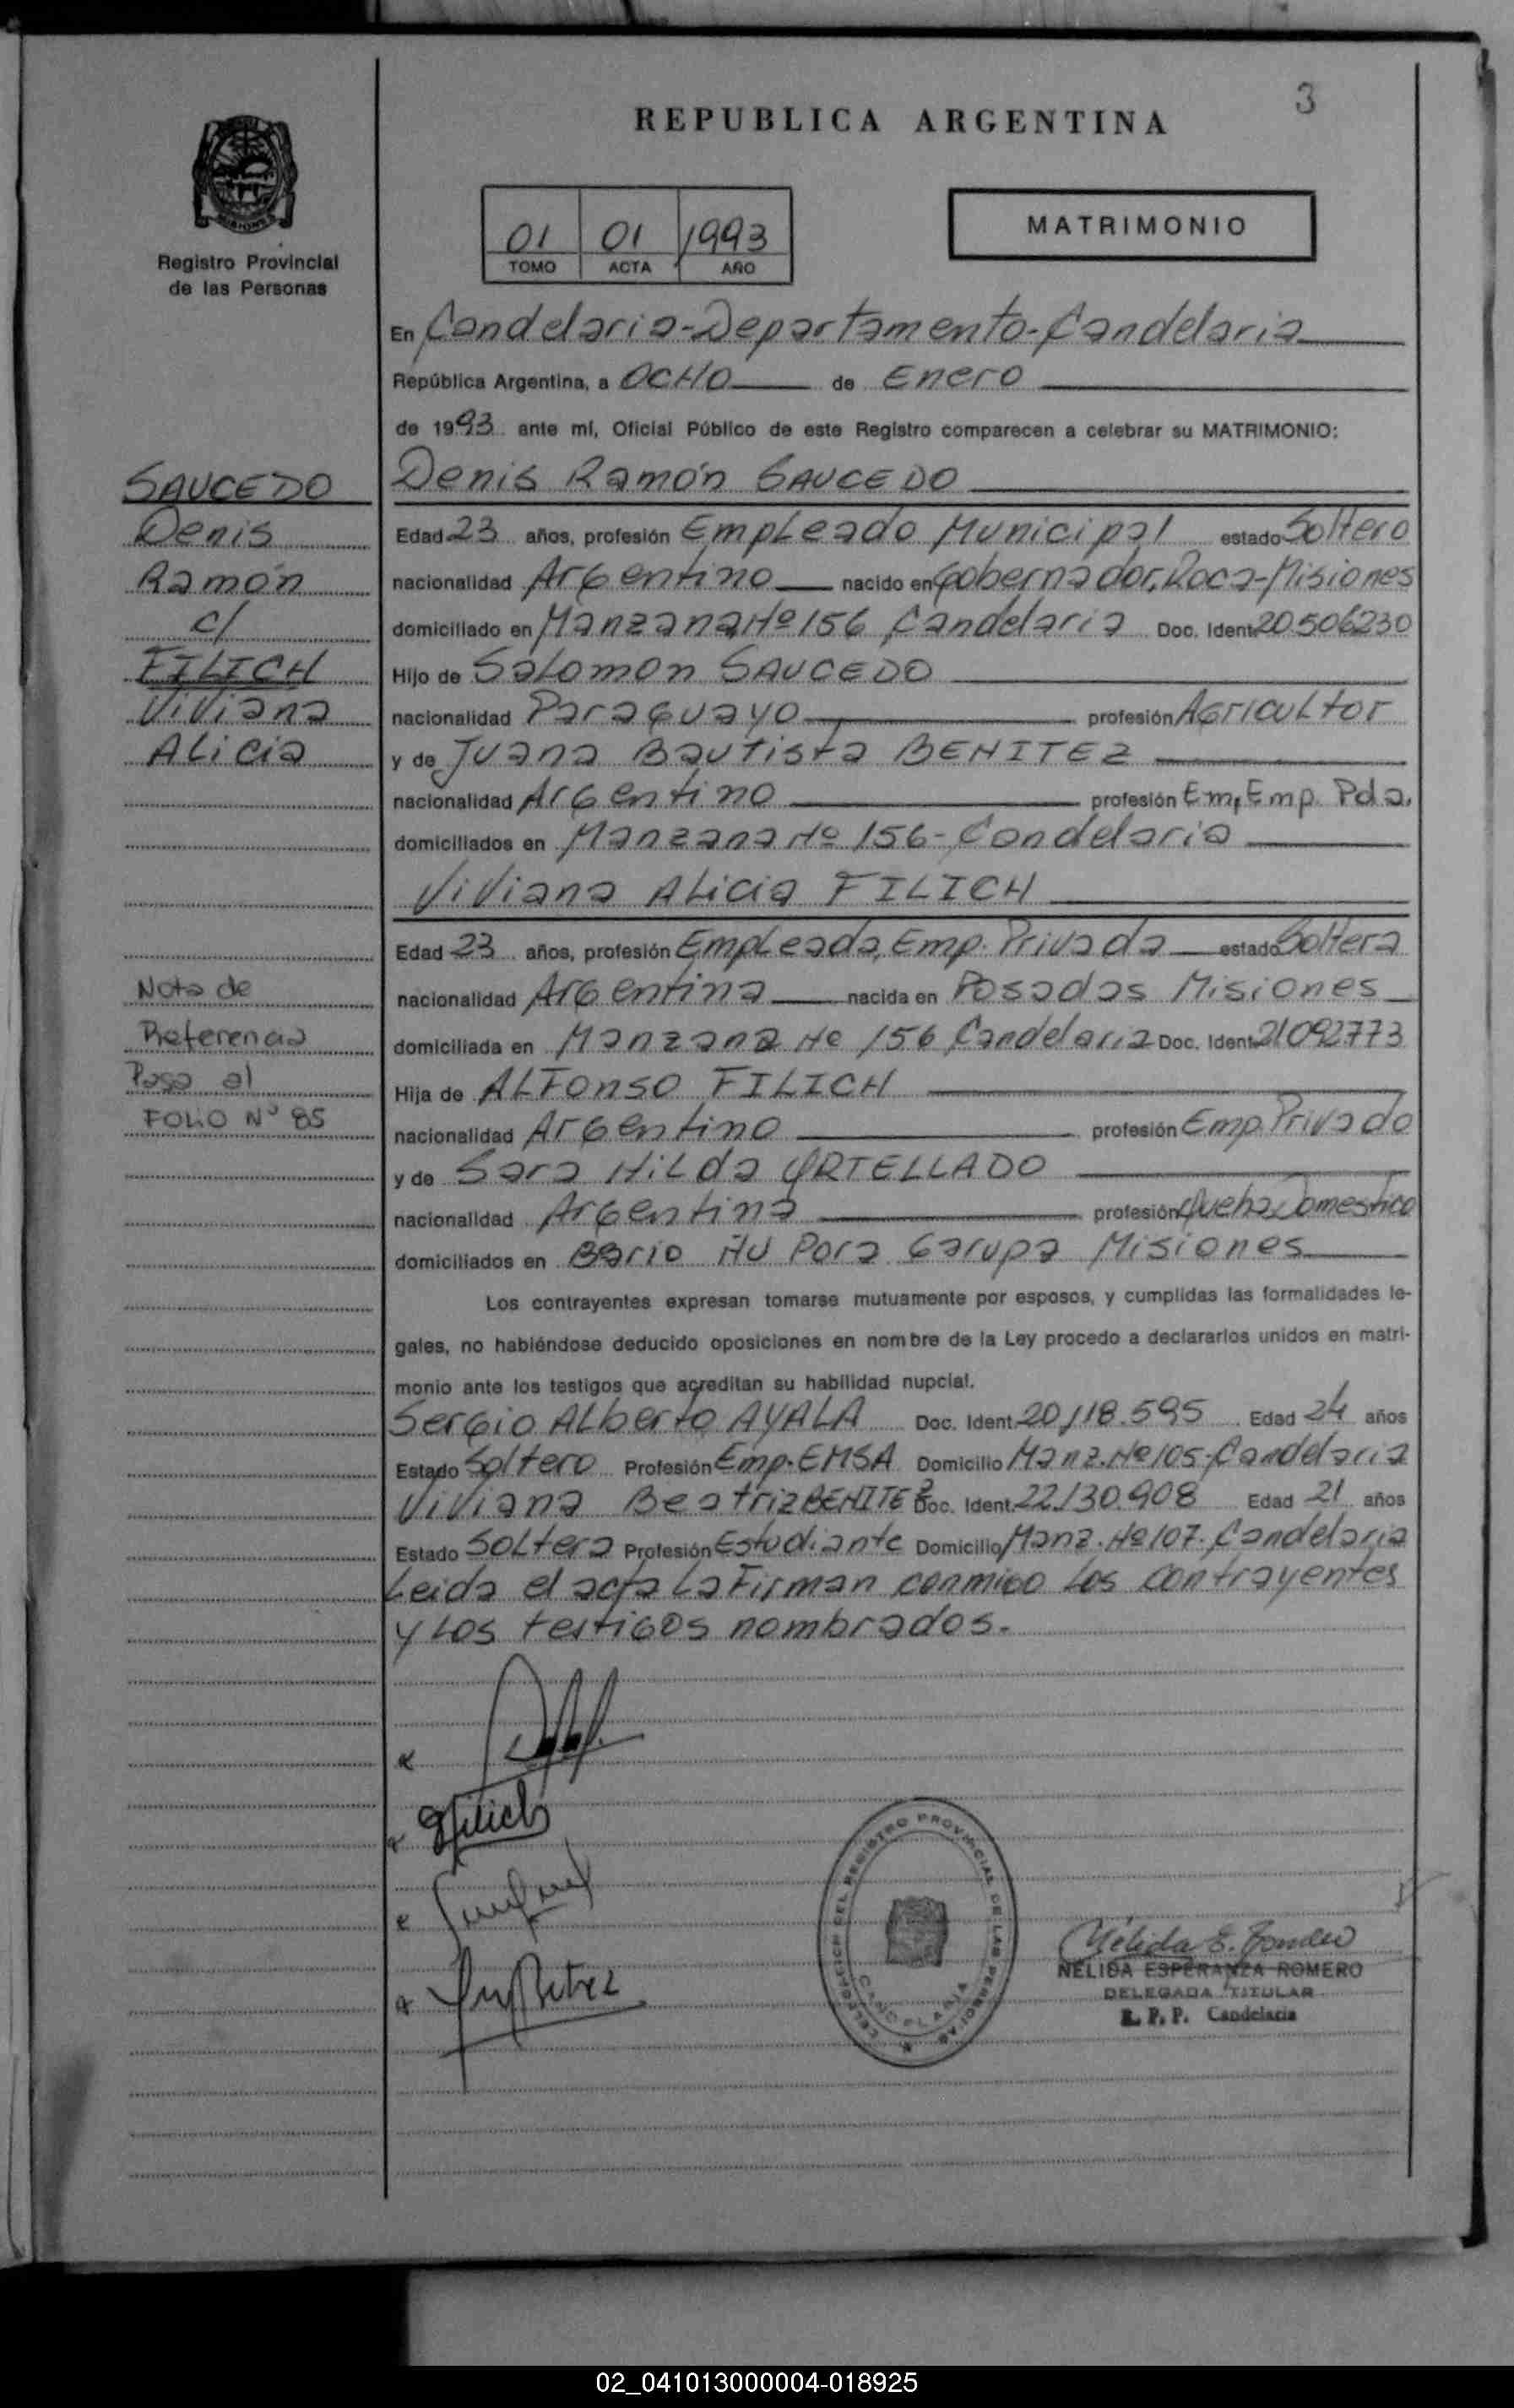 3
REPUBLICA ARGENTINA
MISIONES
Registro Provincial
de las Personas
01 01 1993
TOMO ACTA AÑO
MATRIMONIO
En Candelaria-Departamento-Candelaria
República Argentina, a OCHO de Enero
de 1993 ante mí, Oficial Público de este Registro comparecen a celebrar su MATRIMONIO:
SAUCEDO
Denis
Ramón
c/
FILICH
Viviana
Alicia
Denis Ramón SAUCEDO
Edad 23 años, profesión Empleado Municipal estado Soltero
nacionalidad Argentino nacido en Gobernador, Roca-Misiones
domiciliado en Manzana Nº 156 Candelaria Doc. Ident. 20506230
Hijo de Salomon SAUCEDO
nacionalidad Paraguayo profesión Agricultor
y de Juana Bautista BENITEZ
nacionalidad Argentino profesión Em, Emp. Pda.
domiciliados en Manzana Nº 156- Candelaria
Viviana Alicia FILICH
Edad 23 años, profesión Empleada, Emp. Privada estado Soltera
nacionalidad Argentina nacida en Posadas Misiones
domiciliada en Manzana Nº 156 Candelaria Doc. Ident. 21092773
Hija de ALFonso FILICH
nacionalidad Argentino profesión Emp. Privado
y de Sara Hilda ORTELLADO
nacionalidad Argentina profesión Queha. Domestico
domiciliados en Bario Ñu Pora Garupa Misiones
Nota de
Referencia
Pasa al
FOLIO Nº 85
Los contrayentes expresan tomarse mutuamente por esposos, y cumplidas las formalidades le-
gales, no habiéndose deducido oposiciones en nombre de la Ley procedo a declararlos unidos en matri-
monio ante los testigos que acreditan su habilidad nupcial.
Sergio Alberto AYALA Doc. Ident. 20.118.595 Edad 24 años
Estado Soltero Profesión Emp. EMSA Domicilio Manz. Nº 105-Candelaria
Viviana Beatriz BENITEZ Doc. Ident. 22.130.908 Edad 21 años
Estado Soltera Profesión Estudiante Domicilio Manz. Nº 107. Candelaria
Leida el acta La Firman conmigo Los contrayentes
y Los testigos nombrados.
Filich
DELEGACION DEL REGISTRO PROVINCIAL DE LAS PERSONAS
CANDELARIA
NELIDA ESPERANZA ROMERO
DELEGADA TITULAR
R. P. P. Candelaria
02_041013000004-018925